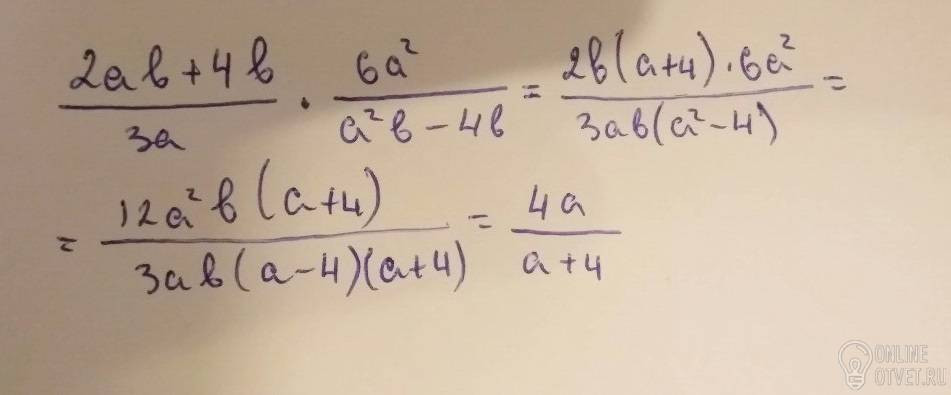 (2ab+4b)/(3a) · (6a²)/(a²b-4b) = (2b(a+4)·6a²)/(3ab(a²-4)) =
= (12a²b(a+4))/(3ab(a-4)(a+4)) = (4a)/(a+4)
ONLINE
OTVET.RU